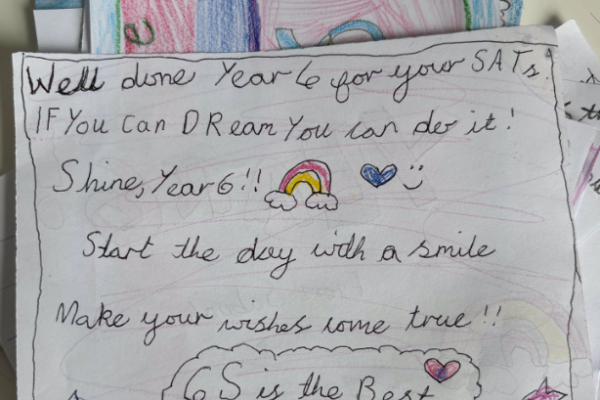 Well done Year 6 for your SATs!
IF You Can DReam You can do it!
Shine, Year 6!!
Start the day with a smile
Make your wishes come true!!
6S is the Best